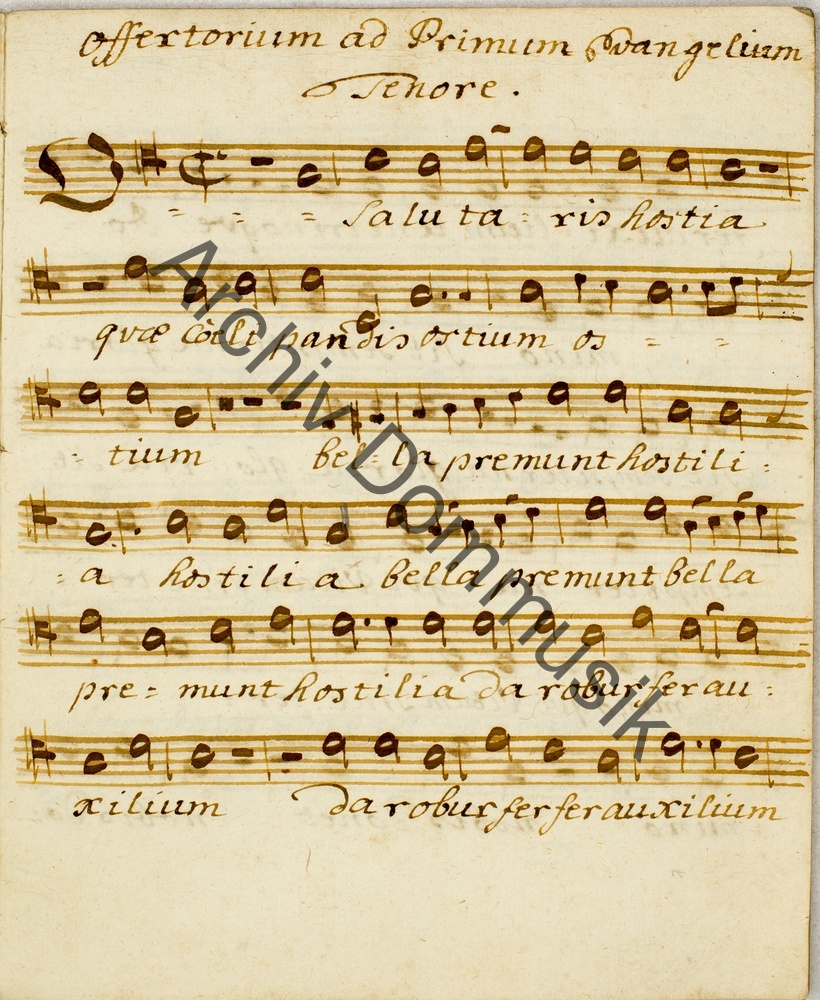 Offertorium ad Primum Evangelium
Tenore.
O = = = Saluta = ris hostia
quæ Coeli pandis ostium os = =
= tium bel = la premunt hostili =
= a hostilia bella premunt bella
pre = munt hostilia da robur fer au =
xilium da robur fer fer auxilium
Archiv Dommusik